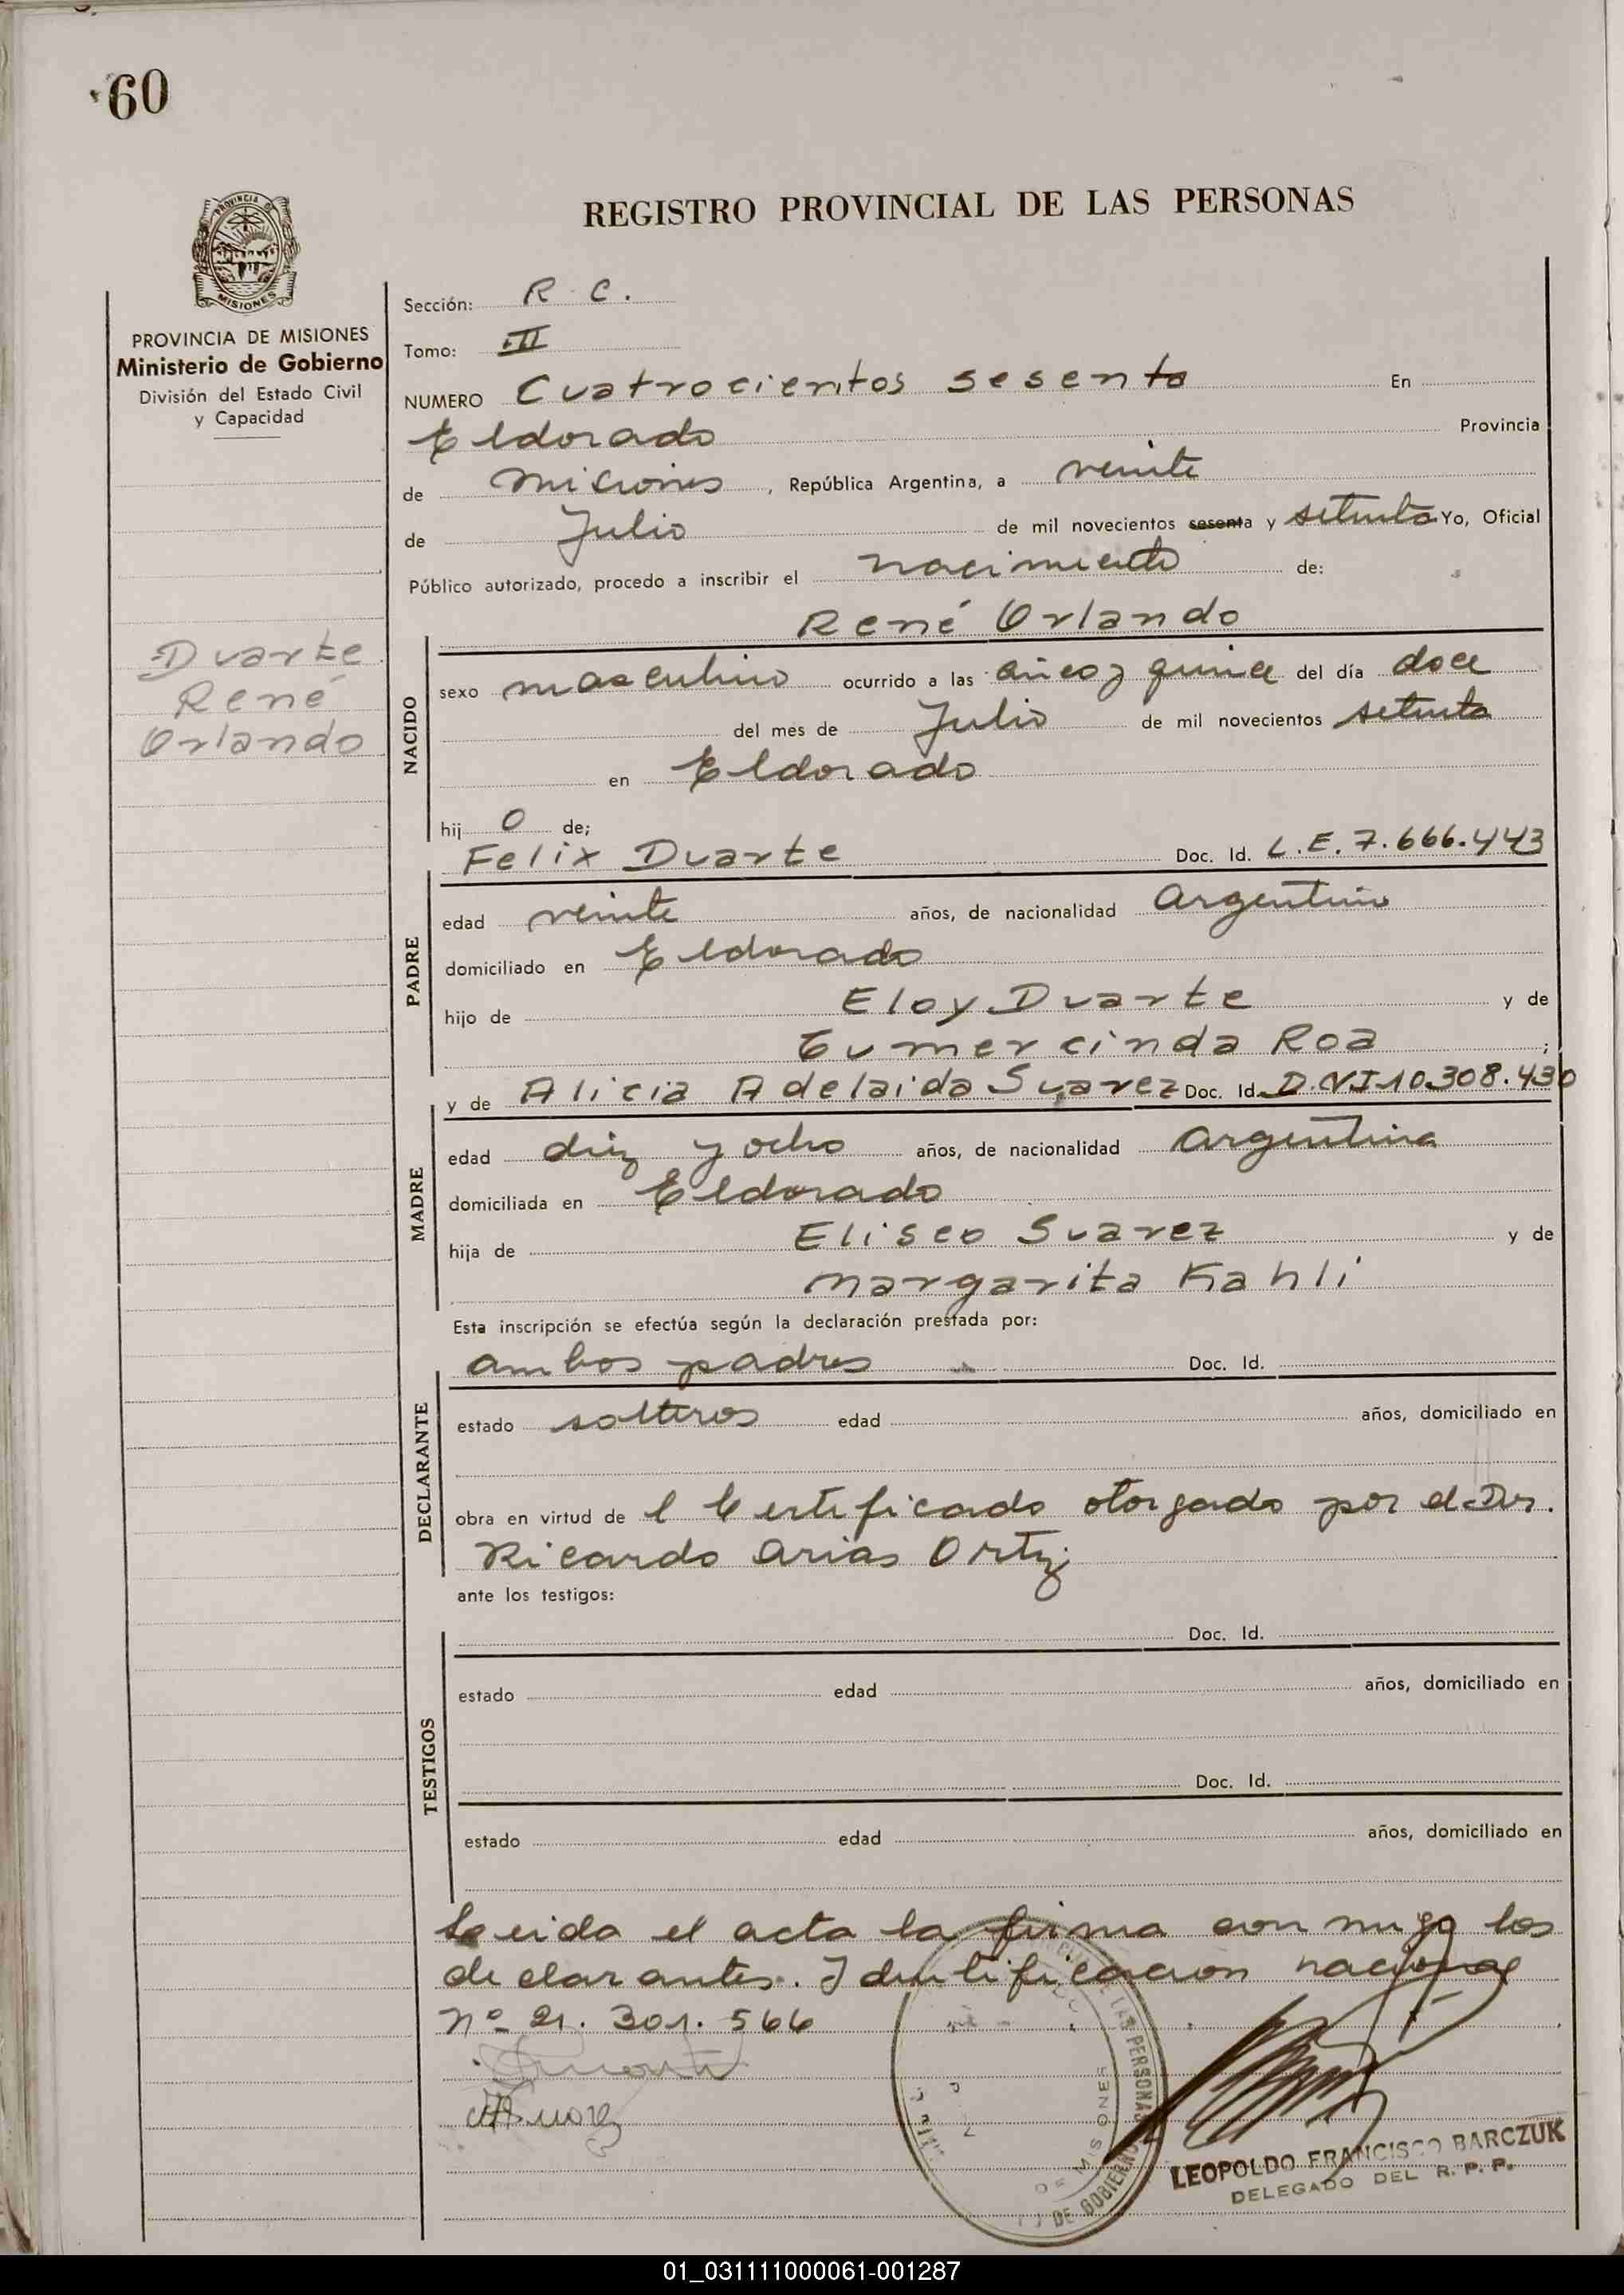 60
REGISTRO PROVINCIAL DE LAS PERSONAS
PROVINCIA DE MISIONES
Ministerio de Gobierno
División del Estado Civil
y Capacidad
Duarte
René
Orlando
Sección: R. C.
Tomo: III
NUMERO Cuatrocientos sesenta En
Eldorado Provincia
de Misiones, República Argentina, a veinte
de Julio de mil novecientos sesenta y setenta Yo, Oficial
Público autorizado, procedo a inscribir el nacimiento de:
René Orlando
NACIDO
sexo masculino ocurrido a las cinco y quince del día doce
del mes de Julio de mil novecientos setenta
en Eldorado
hij o de;
Felix Duarte Doc. Id. L.E. 7.666.443
PADRE
edad veinte años, de nacionalidad Argentino
domiciliado en Eldorado
hijo de Eloy Duarte y de
Gumercinda Roa ;
y de Alicia Adelaida Suarez Doc. Id. D.N.I 10.308.430
MADRE
edad diez y ocho años, de nacionalidad Argentina
domiciliada en Eldorado
hija de Eliseo Suarez y de
Margarita Kahli
Esta inscripción se efectúa según la declaración prestada por:
ambos padres Doc. Id.
DECLARANTE
estado solteros edad años, domiciliado en
obra en virtud de l Certificado otorgado por el Dr.
Ricardo Arias Ortiz
ante los testigos:
Doc. Id.
TESTIGOS
estado edad años, domiciliado en
Doc. Id.
estado edad años, domiciliado en
Leida el acta la firma con migo los
declarantes. Identificacion nacional
Nº 21.301.566
LEOPOLDO FRANCISCO BARCZUK
DELEGADO DEL R. P. P.
01_031111000061-001287